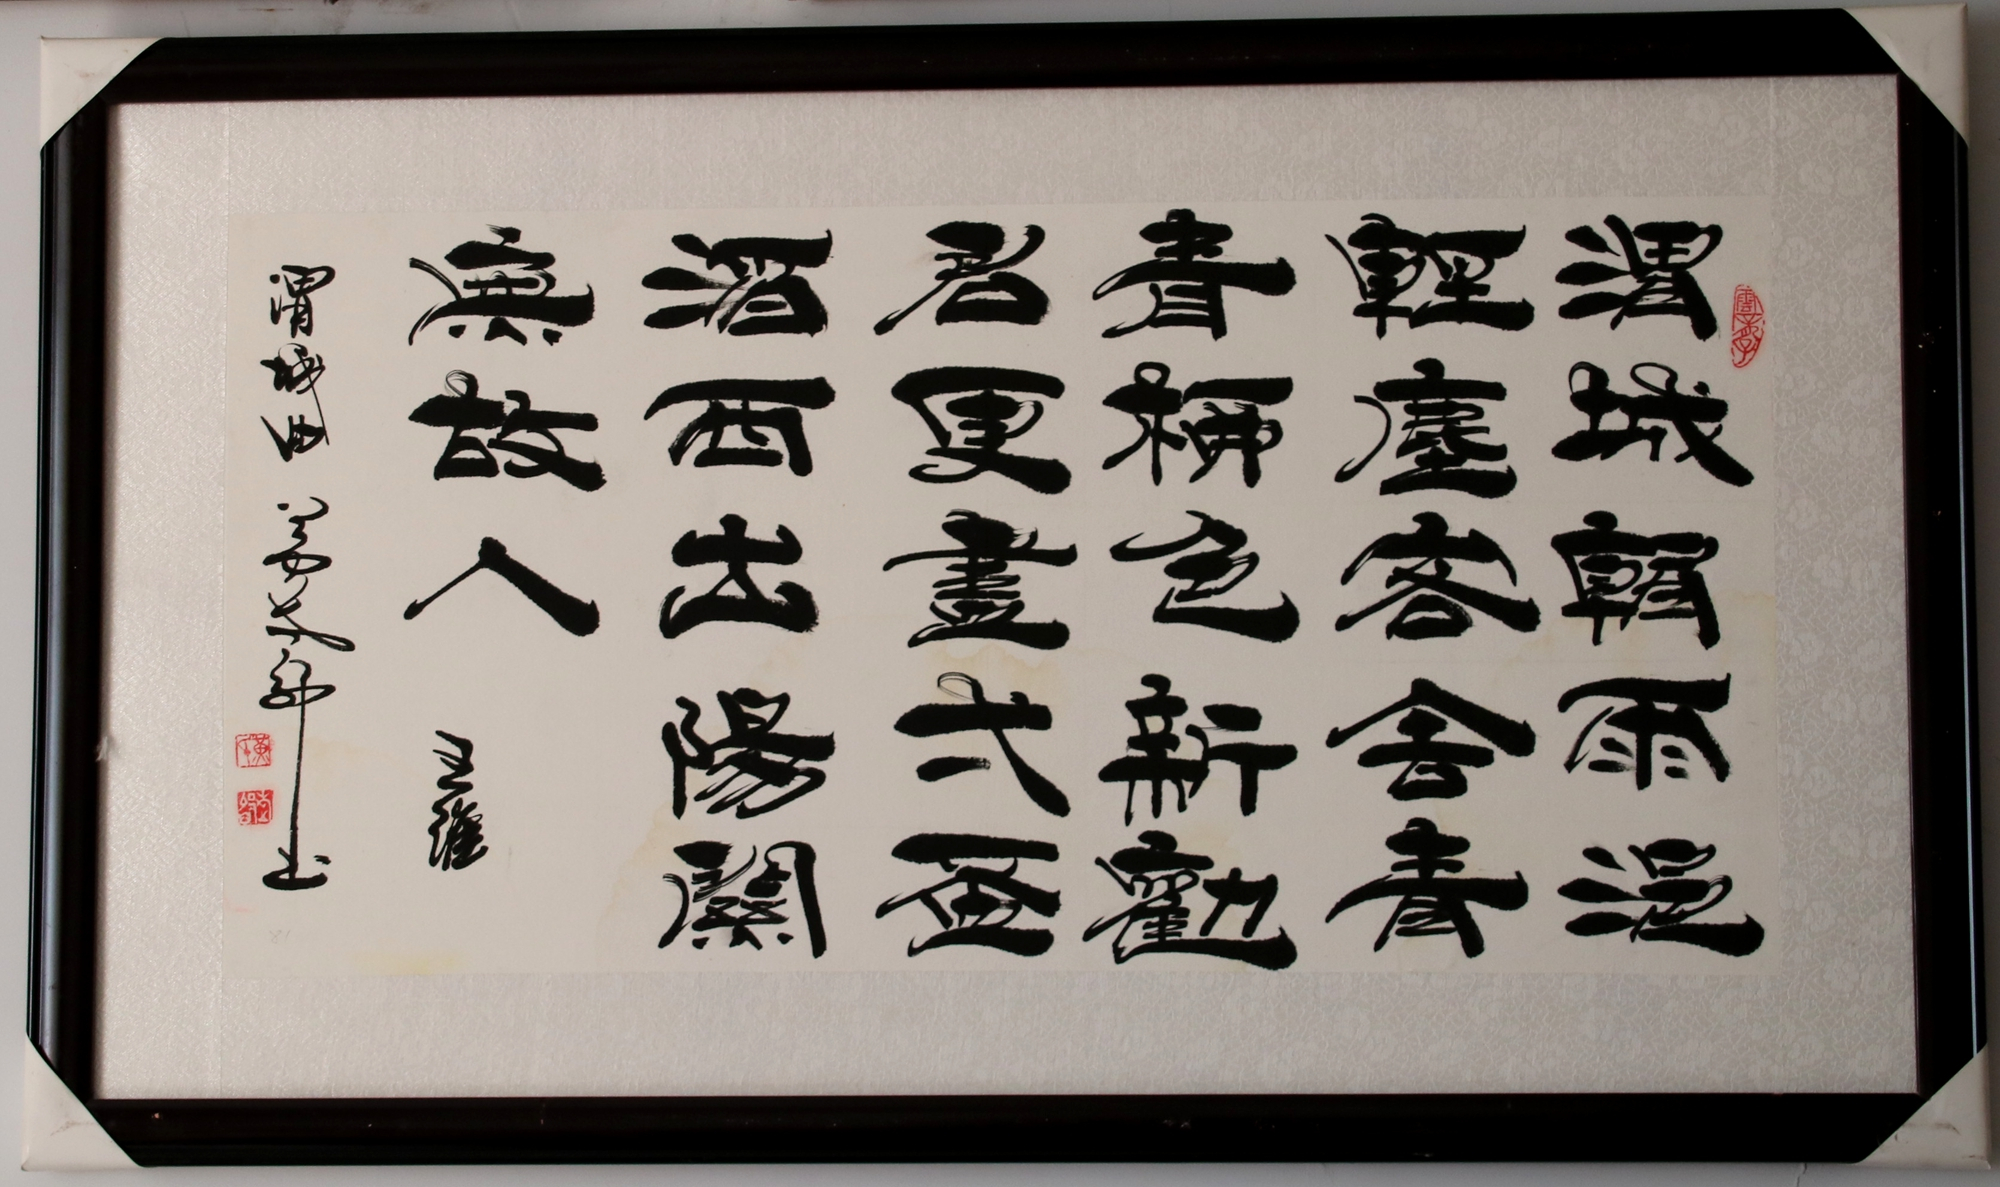 渭城朝雨浥
輕塵客舍青
青柳色新勸
君更盡弌盃
酒西出陽關
無故人
王維
渭城曲
書